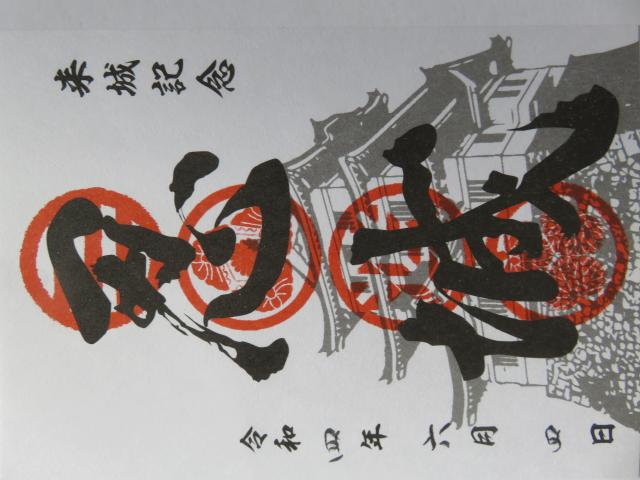 来城記念
忍城
令和四年六月四日